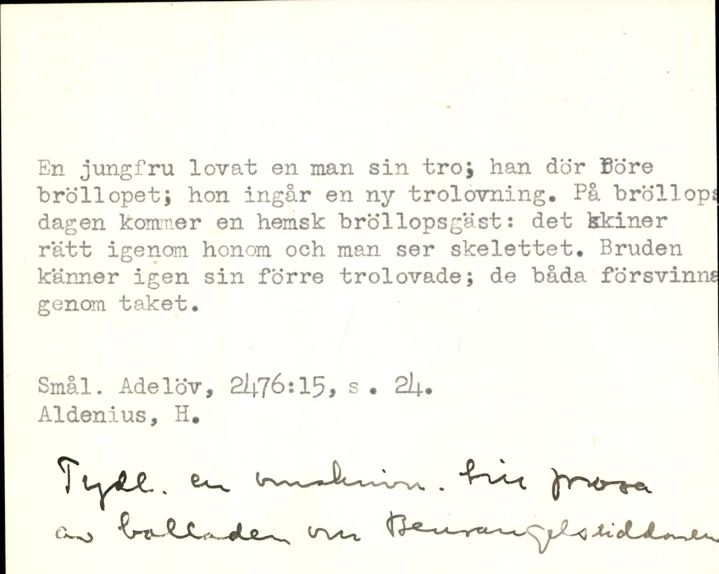 En jungfru lovat en man sin tro; han dör före
bröllopet; hon ingår en ny trolovning. På bröllops
dagen kommer en hemsk bröllopsgäst: det skiner
rätt igenom honom och man ser skelettet. Bruden
känner igen sin förre trolovade; de båda försvinna
genom taket.
Smål. Adelöv, 2476:15, s. 24.
Aldenius, H.
Tydl. en omskrivn. till prosa
av balladen om Benrangelsriddaren